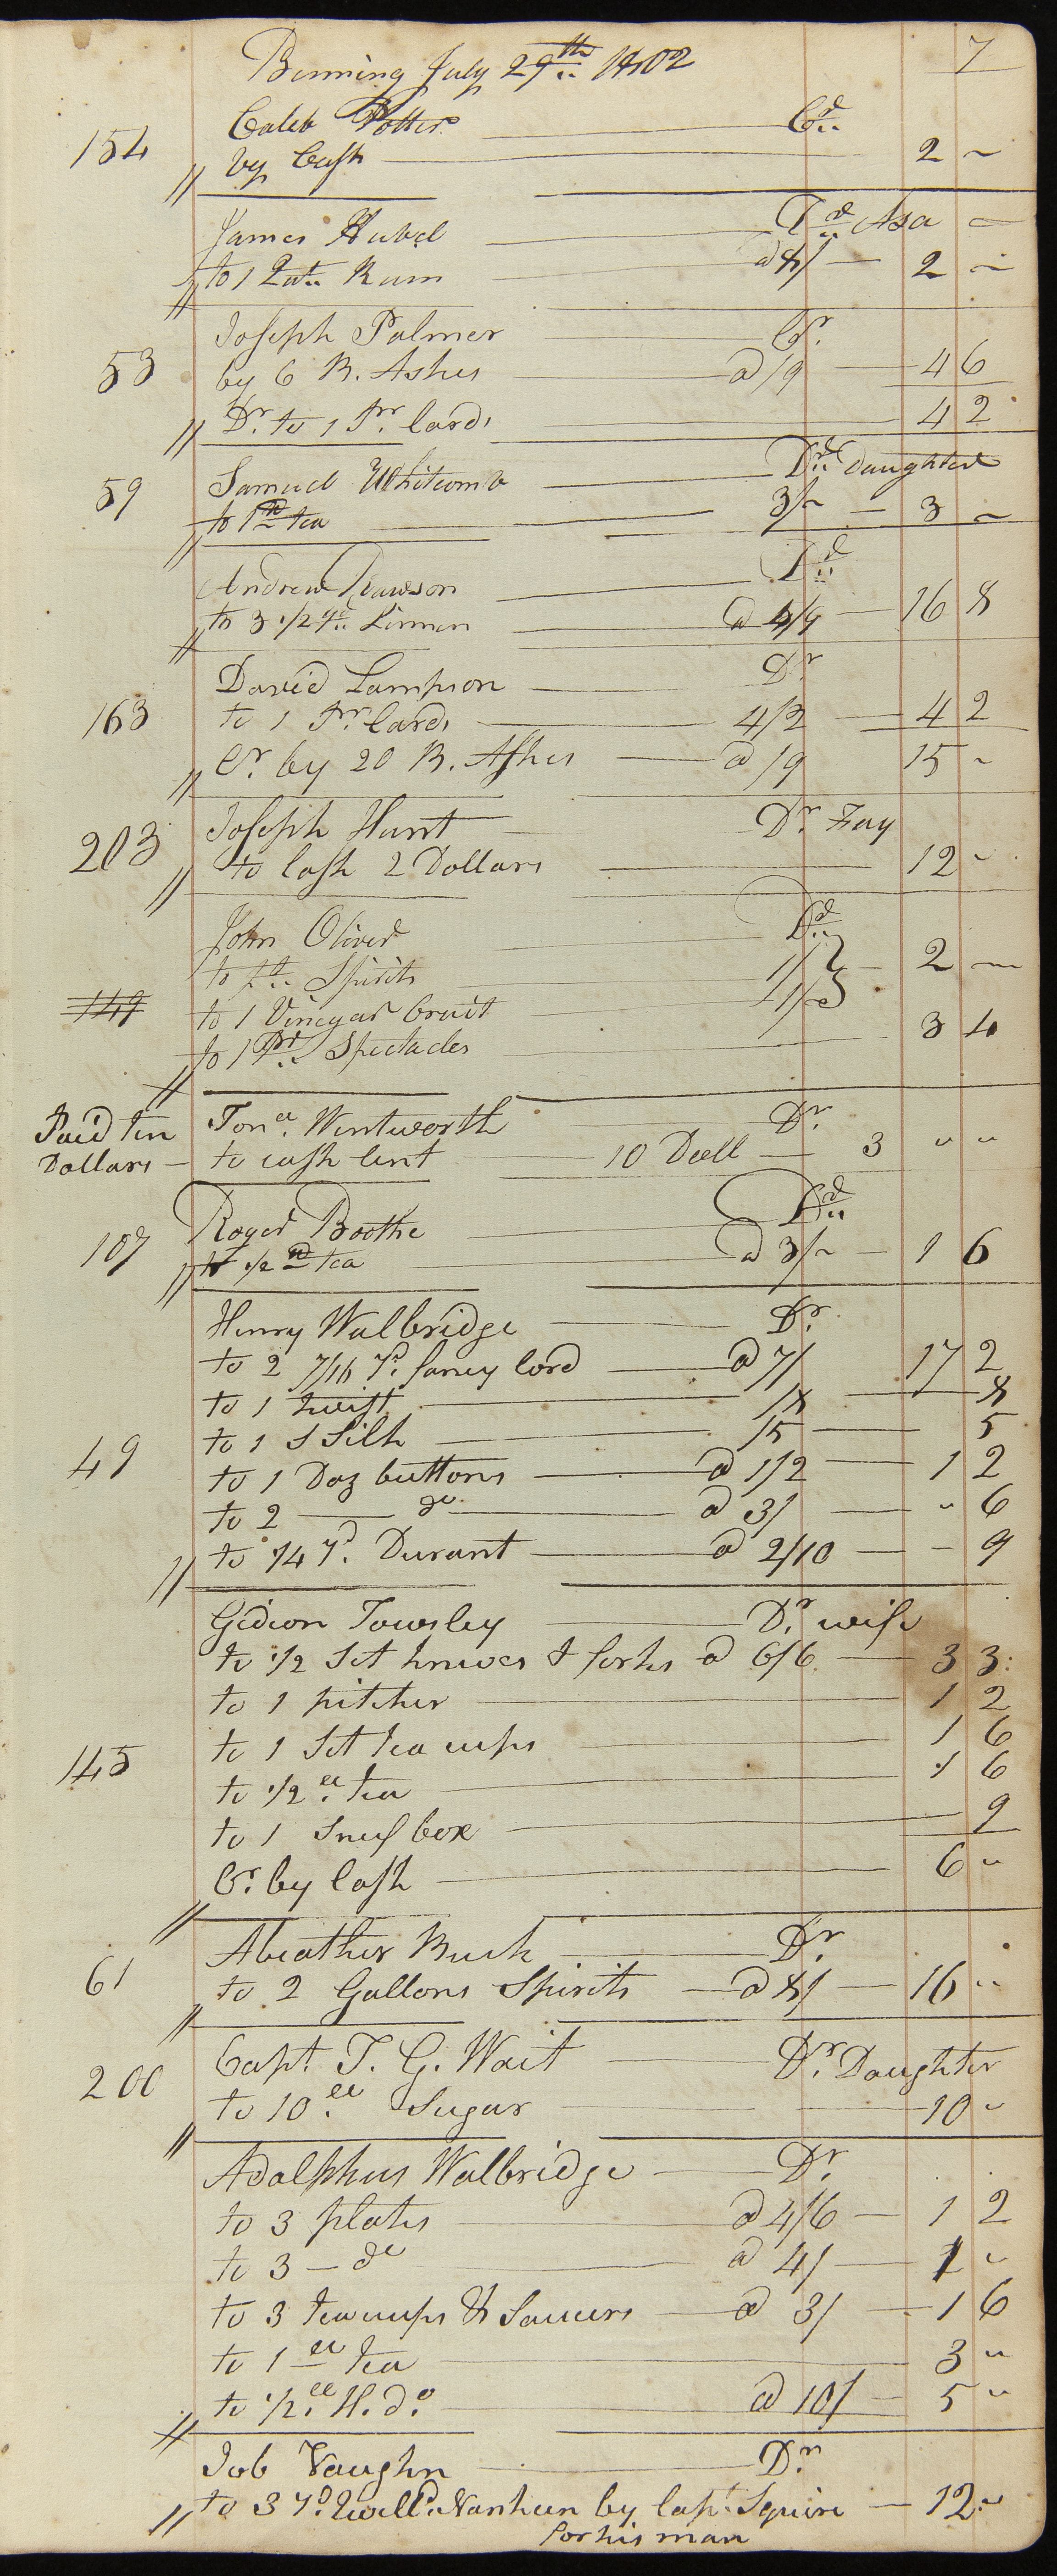 Benning July 29th 1802 7
Caleb Potter Cr
154 by Cash 2 ~
James Hubel Dr Asa
to 1 Qut Rum @ 8/ 2 ~
Joseph Palmer Cr
53 by 6 B. Ashes @ /9 4 6
Dr. to 1 Pr. Cards 4 2
Samuel Whitcomb Dr Daughter
59 to 1 lb tea 3/~ 3 ~
Andrew Rawson Dr
to 3 1/2 yd Linnen @ 4/9 16 8
David Lampson Dr
163 to 1 Pr. Cards 4/2 4 2
Cr. by 20 B. Ashes @ /9 15 ~
203 Joseph Hunt Dr. Fay
to Cash 2 Dollars 12 ~
John Oliver Dr
to pt Spirits 1/ 2 ~
149 to 1 Vinegar Cruit 1/~
to 1 Pr Spectacles 3 4
Paid ten Jona. Wentworth Dr.
Dollars to cash lent 10 Doll 3 ~ ~
Roger Boothe Dr
107 to 1/2 lb tea @ 3/~ 1 6
Henry Walbridge Dr.
to 2 7/16 yd. fancy Cord @ 7/ 17 2
to 1 twist /8 8
to 1 S Silk /5 5
49 to 1 Doz buttons @ 1/2 1 2
to 2 do @ 3/ ~ 6
to 1/4 yd. Durant @ 2/10 - 9
Gideon Towsley Dr. wife
to 1/2 Set knives & forks @ 6/6 3 3
to 1 pitcher 1 2
to 1 Set tea cups 1 6
145 to 1/2 lb. tea 1 6
to 1 Snuf box 9
Cr. by Cash 6 ~
Abiather Buck Dr.
61 to 2 Gallons Spirits @ 8/ 16 ~
Capt. T. G. Wait Dr. Daughter
200 to 10 lb. Sugar 10 ~
Adolphus Walbridge Dr.
to 3 plates @ 4/6 1 2
to 3 - do @ 4/ 1 ~
to 3 teacups & Saucers @ 3/ 1 6
to 1 lb tea 3 ~
to 1/2 lb. H. do. @ 10/ 5 ~
Job Vaughn Dr.
to 3 yd. Nankeen by Capt. Squire 12 ~
for his man